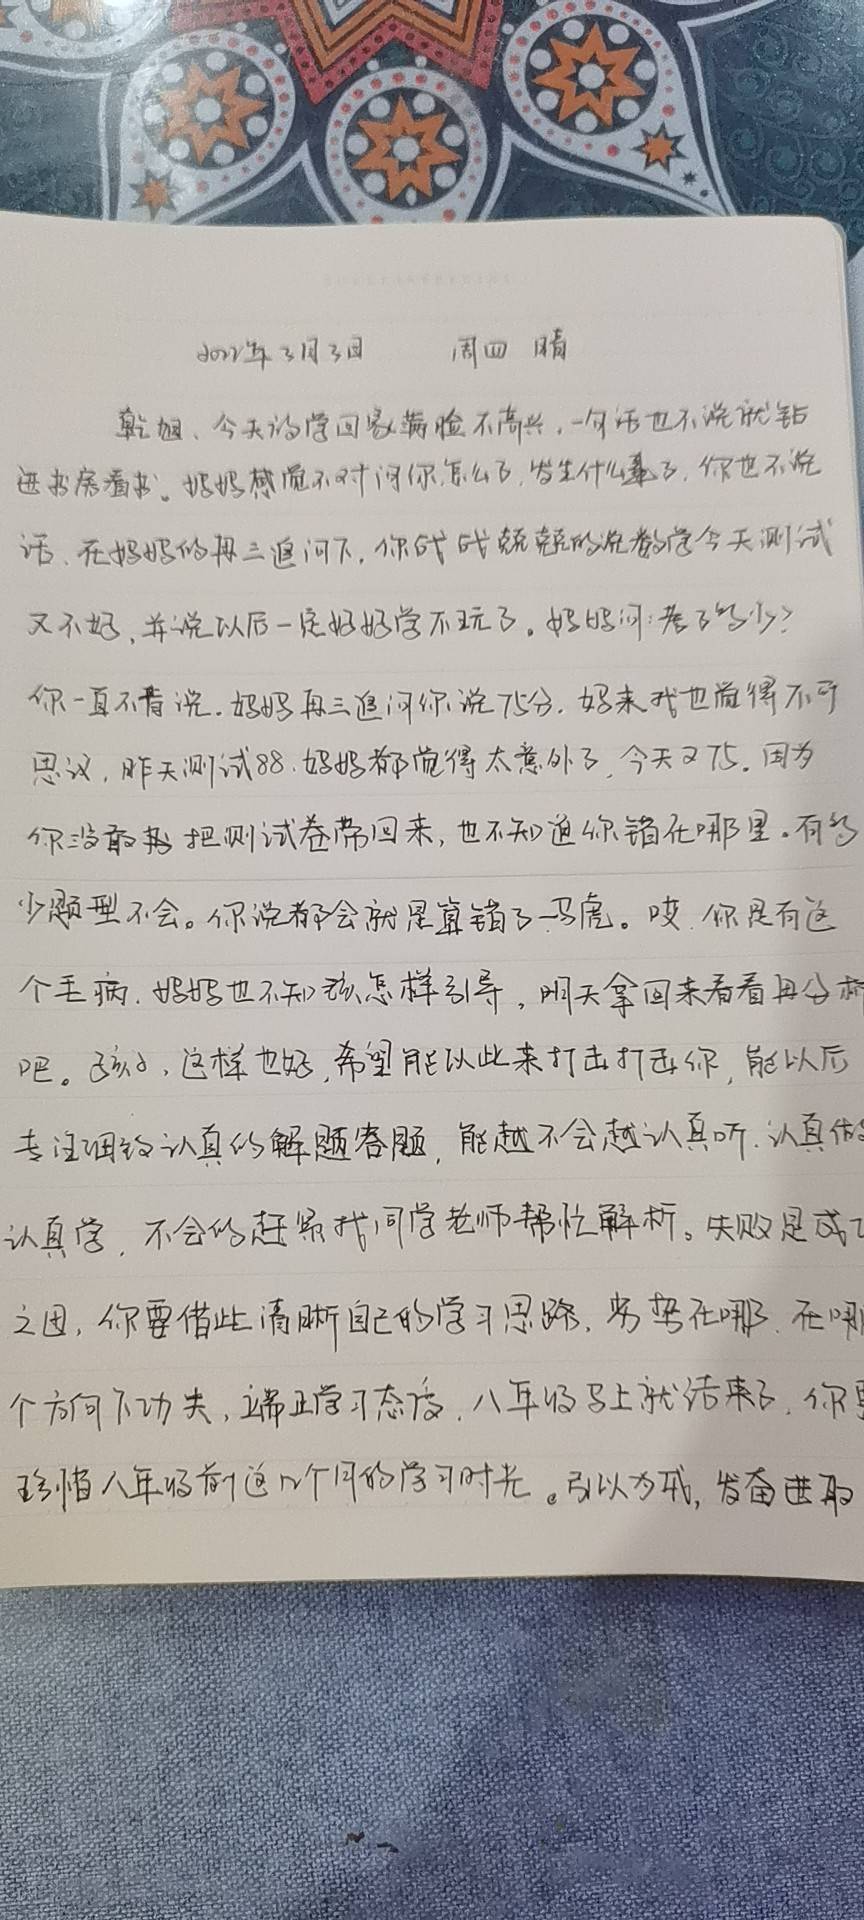 2022年3月3日 周四 晴
乾旭、今天放学回家满脸不高兴,一句话也不说就钻
进书房看书。妈妈感觉不对问你怎么了,发生什么事了,你也不说
话、在妈妈的再三追问下,你战战兢兢的说数学今天测试
又不好,并说以后一定好好学不玩了。妈妈问:考了多少?
你一直不肯说.妈妈再三追问你说75分.妈来我也觉得不可
思议,昨天测试88.妈妈都觉得太意外了,今天又75。因为
你没敢把测试卷带回来,也不知道你错在哪里。有多
少题型不会。你说都会就是算错了马虎。哎.你是有这
个毛病.妈妈也不知该怎样引导,明天拿回来看看再分析
吧。孩子、这样也好,希望能以此来打击打击你,能以后
专注细致认真的解题答题,能越不会越认真听.认真做
认真学,不会的赶紧找同学老师帮忙解析。失败是成功
之因,你要借此清晰自己的学习思路,劣势在哪.在哪
个方向下功夫,端正学习态度.八年级马上就结束了.你要
珍惜八年级前这几个月的学习时光。引以为戒,发奋进取